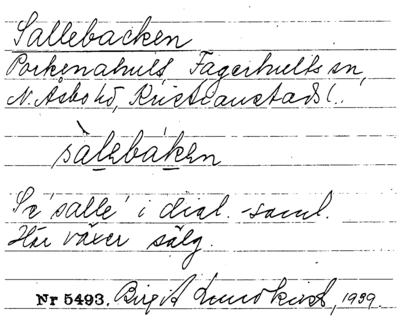 Sallebacken
Porkenahult, Fagerhults sn,
N. Åsbo hd, Kristianstads l.
sàlebáken
Se 'salle' i dial.-saml.
Här växer sälg.
Nr 5493. Birgit Lundkvist, 1939.